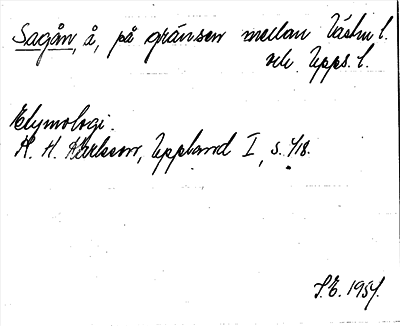 Sagån, å, på gränsen mellan Västm l.
och Upps. l.
Etymologi.
K. H. Karlsson, Uppland I, s. 418.
S.E. 1954.